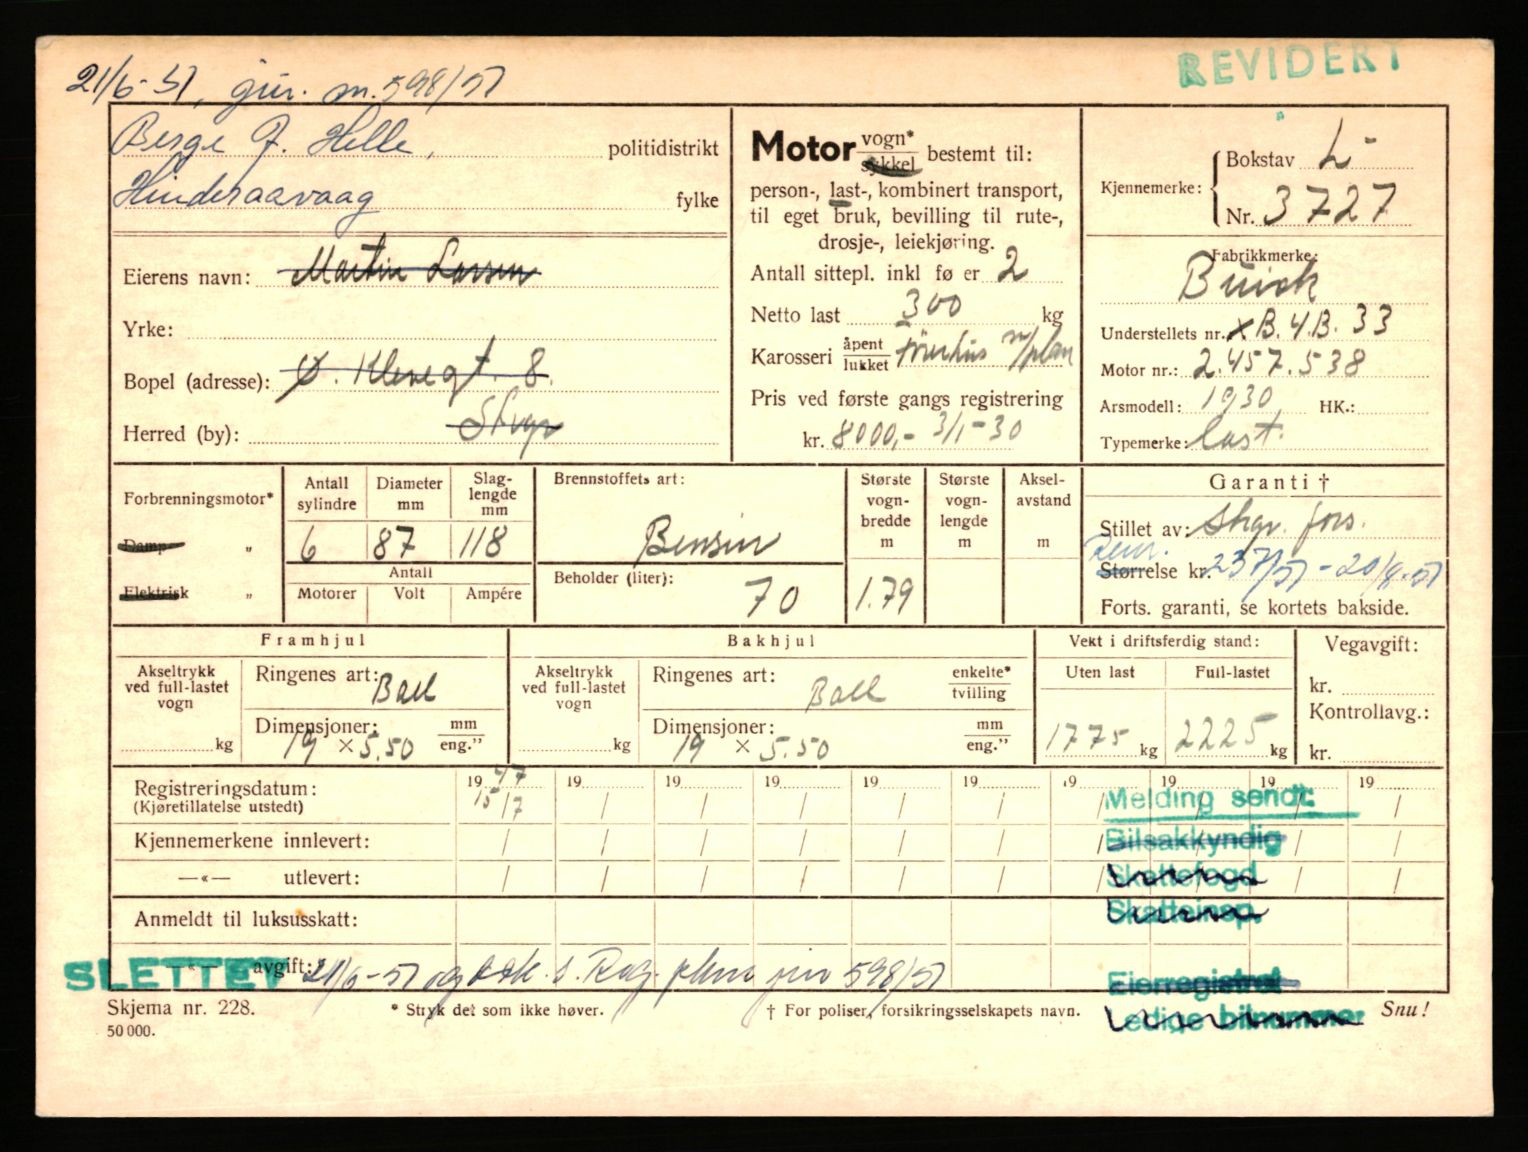 REVIDERT
21/6-51, jnr. 598/51
Berge J. Helle, politidistrikt
Hinderaavaag fylke
Eierens navn: Martin Larsen
Yrke:
Bopel (adresse): Ø. Klevegt. 8.
Herred (by): Stvgr
Motor vogn* sykkel bestemt til:
person-, last-, kombinert transport,
til eget bruk, bevilling til rute-,
drosje-, leiekjøring.
Antall sittepl. inkl fø er 2
Netto last 300 kg
Karosseri åpent lukket førerhus m/plan
Pris ved første gangs registrering
kr. 8000,- 3/1-30
Kjennemerke: Bokstav L-
Nr. 3727
Fabrikkmerke:
Buick
Understellets nr. XB.4.B. 33
Motor nr.: 2.457.538
Arsmodell: 1930 HK.:
Typemerke: Last.
Forbrenningsmotor*
Damp „
Elektrisk „
Antall sylindre 6
Diameter mm 87
Slag-lengde mm 118
Antall
Motorer Volt Ampére
Brennstoffets art:
Bensin
Beholder (liter):
70
Største vogn-bredde m 1.79
Største vogn-lengde m
Aksel-avstand m
Garanti †
Stillet av: Stvgr. fors.
Størrelse kr. 237/51 - 20/8-51
Forts. garanti, se kortets bakside.
Framhjul
Akseltrykk ved full-lastet vogn kg
Ringenes art: Ball
Dimensjoner: 19 × 5.50 mm eng.”
Bakhjul
Akseltrykk ved full-lastet vogn kg
Ringenes art: Ball enkelte* tvilling
Dimensjoner: 19 × 5.50 mm eng.”
Vekt i driftsferdig stand:
Uten last 1775 kg
Full-lastet 2225 kg
Vegavgift:
kr.
Kontrollavg.:
kr.
Registreringsdatum: 1947 19 19 19 19 19 19 19 19 19
(Kjøretillatelse utstedt) 15/7 / / / / / / / / /
Kjennemerkene innlevert: / / / / / / / / / /
—«— utlevert: / / / / / / / / / /
Anmeldt til luksusskatt:
« avgift:
Melding sendt:
Bilsakkyndig
Skattefogd
Skatteinsp.
Eierregistret
Ledige bilnummer
SLETTET 21/6-51 jnr 598/51
Skjema nr. 228.
50 000.
* Stryk det som ikke høver.
† For poliser, forsikringsselskapets navn.
Snu!